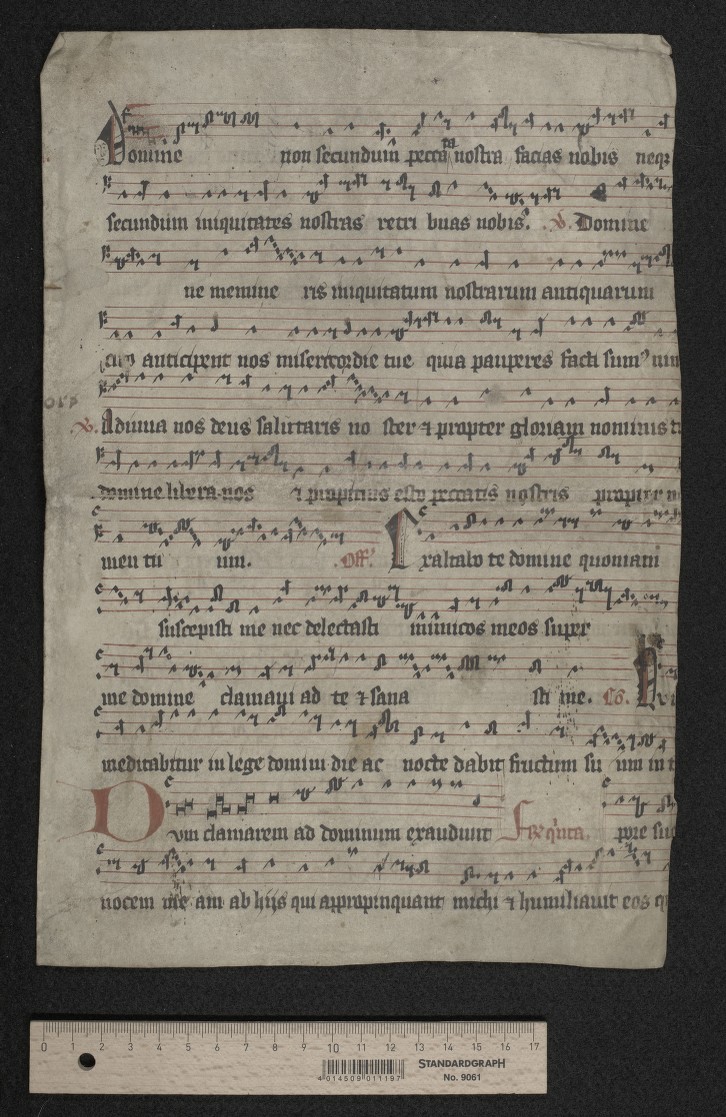 Domine non secundum peccata nostra facias nobis neqz
secundum iniquitates nostras retri buas nobis. V. Domine
ne memine ris iniquitatum nostrarum antiquarum
cito anticipent nos misericordie tue quia pauperes facti sumꝰ nim
V. Adiuua nos deus salutaris no ster ⁊ propter gloriam nominis
domine libera nos ⁊ propicius esto peccatis nostris propter n
men tu um. Off. Exaltabo te domine quoniam
suscepisti me nec delectasti inimicos meos super
me domine clamaui ad te ⁊ sana sti me. Co.
meditabitur in lege domini die ac nocte dabit fructum su um in t
Dum clamarem ad dominum exaudiuit Fer quita. pre
uocem me am ab hijs qui appropinquant michi ⁊ humiliauit eos q
0 1 2 3 4 5 6 7 8 9 10 11 12 13 14 15 16 17
4 014509 011197
STANDARDGRAPH
No. 9061